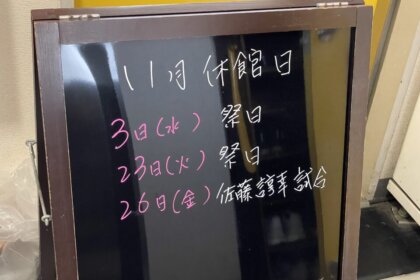 11月休館日
3日(水) 祭日
23日(火) 祭日
26日(金) 佐藤諄幸試合